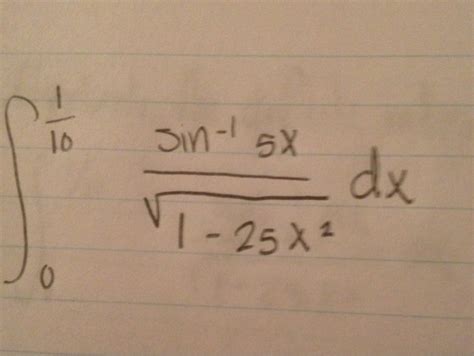 ∫₀^(1/10) (sin⁻¹ 5x) / √(1 - 25x²) dx